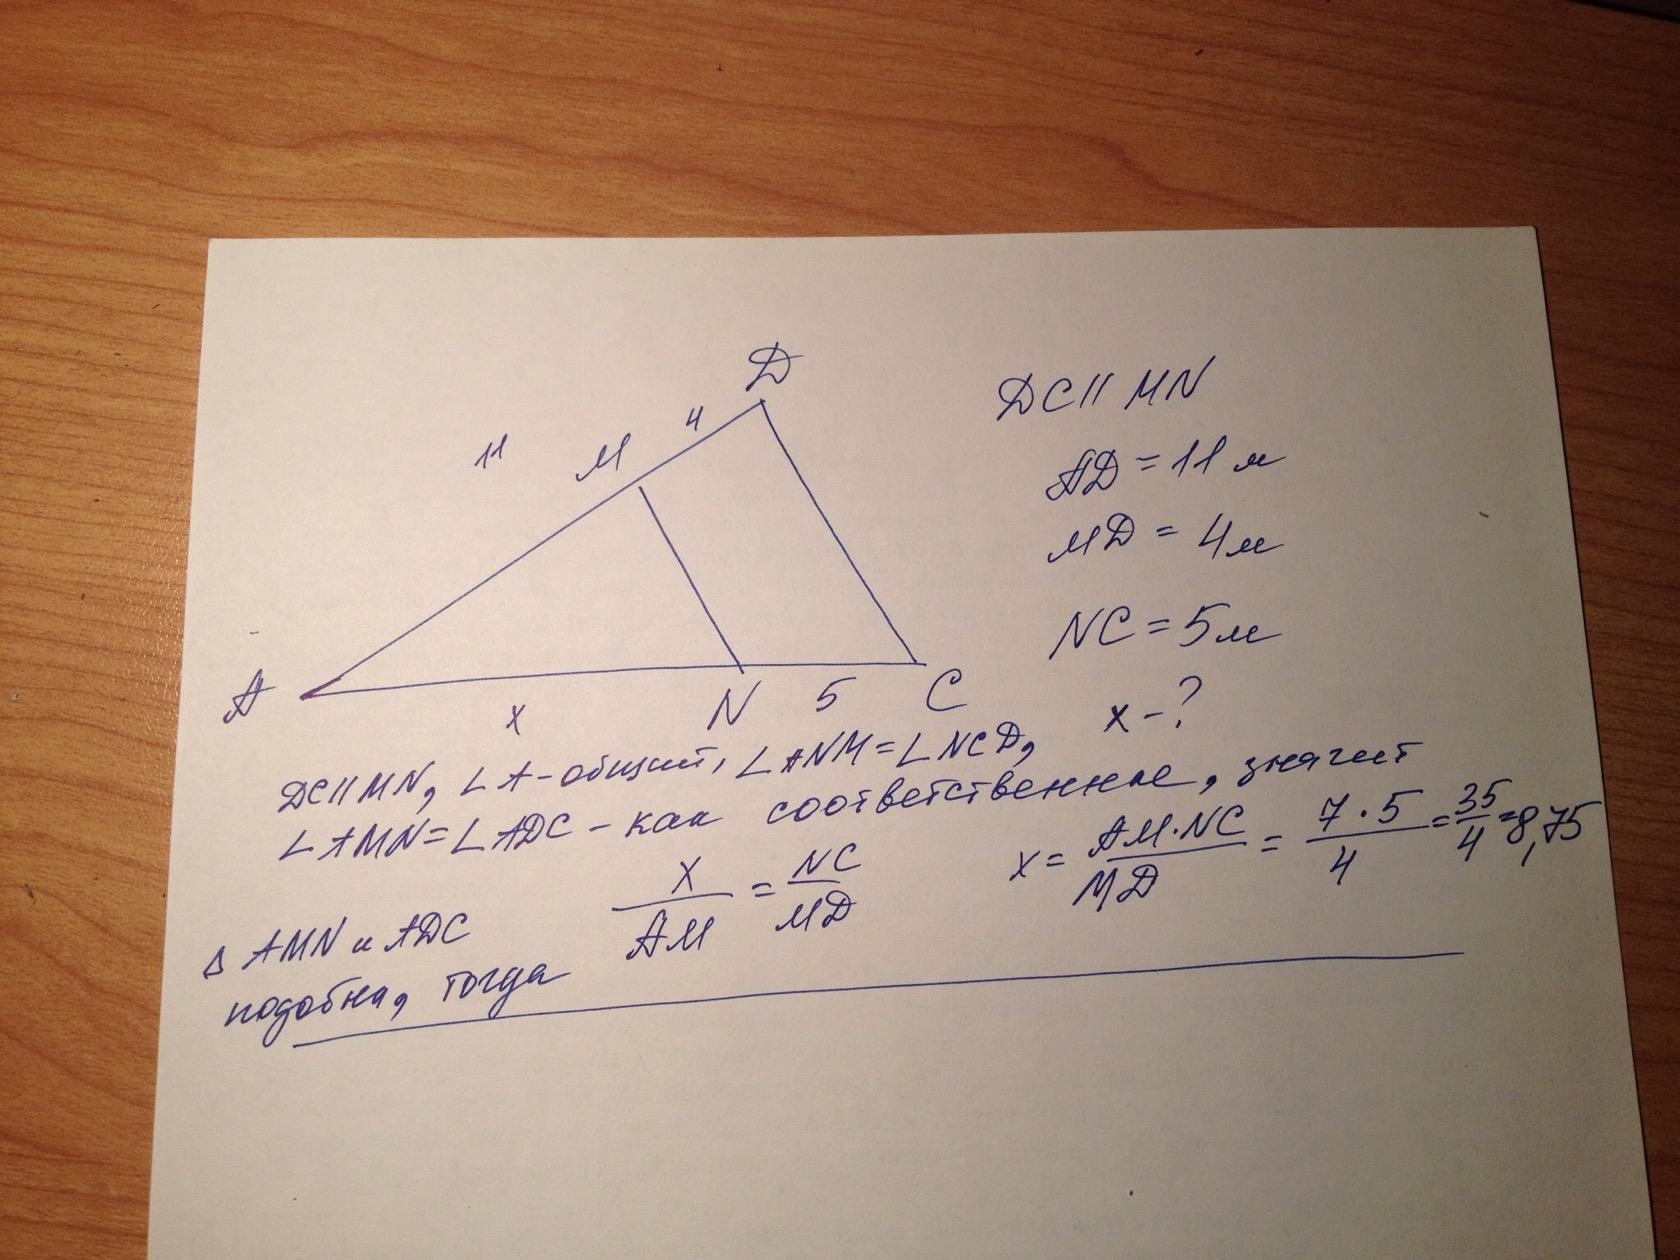 D
11
M
4
A
x
N
5
C
DC || MN
AD = 11 м
MD = 4 м
NC = 5 м
x - ?
DC || MN, ∠A - общий, ∠ANM = ∠NCD,
∠AMN = ∠ADC - как соответственные, значит
Δ AMN и ADC
подобны, тогда
x/AM = NC/MD
x = AM·NC/MD = 7·5/4 = 35/4 = 8,75